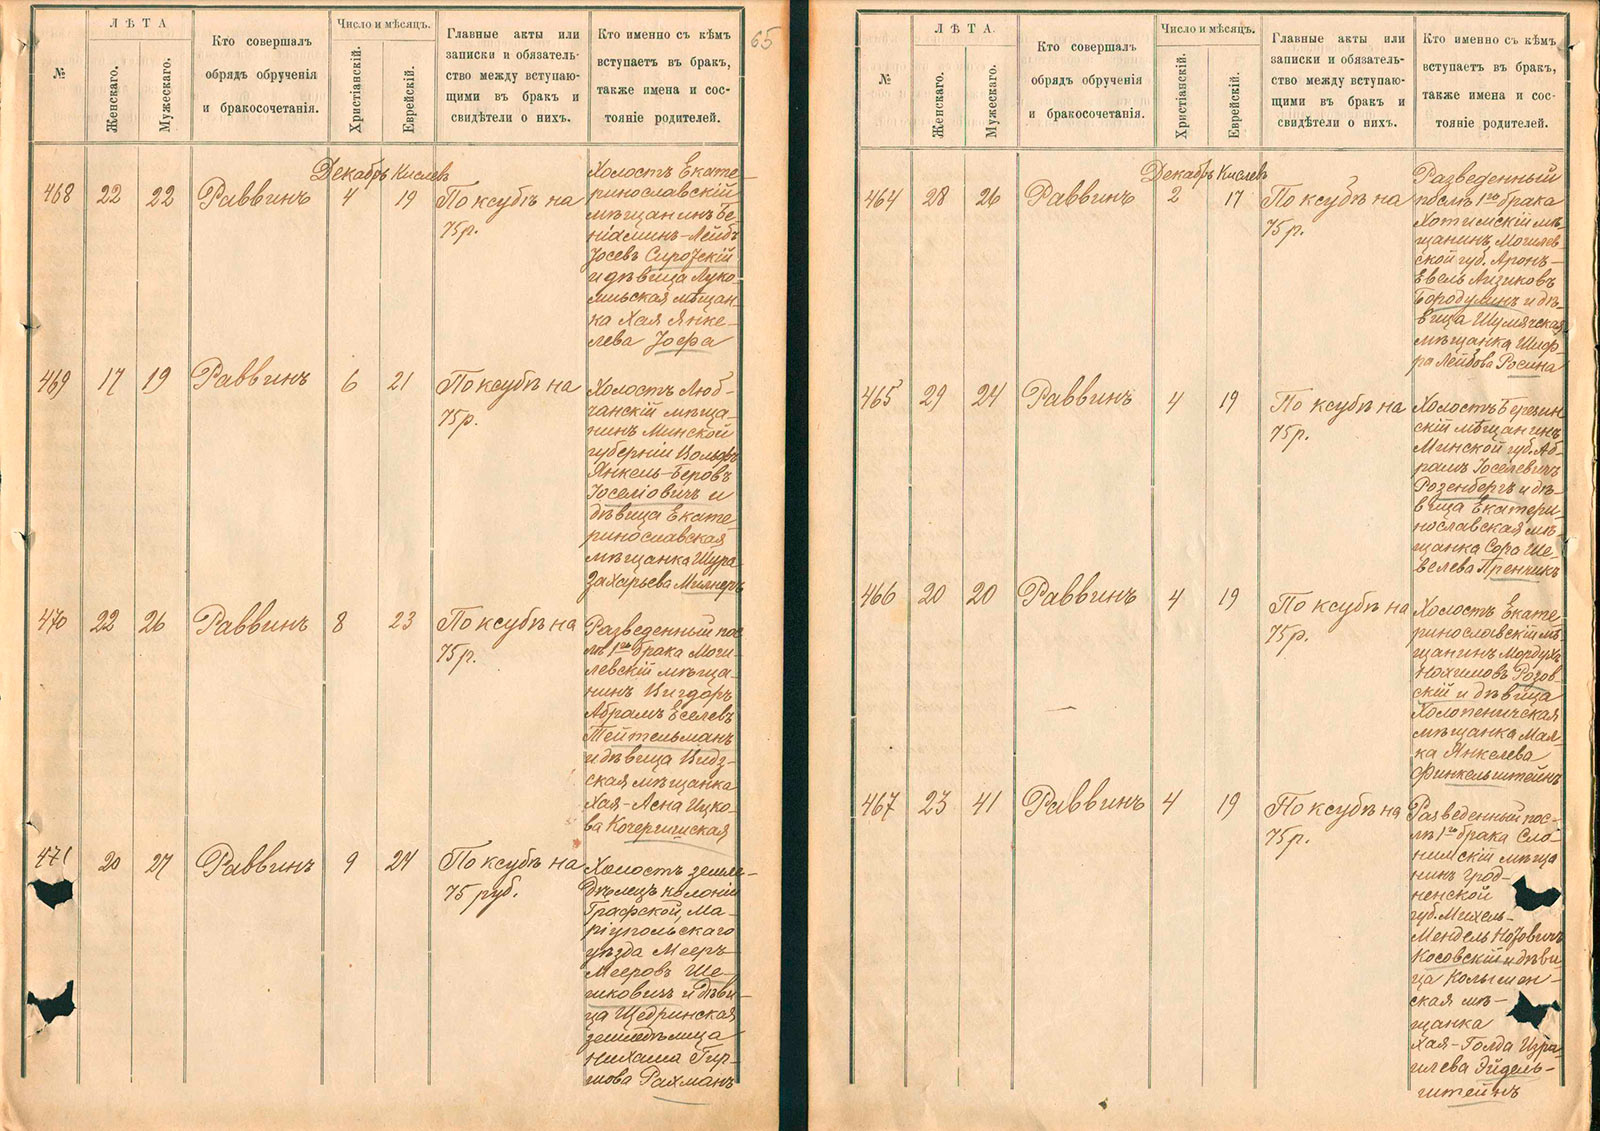 65
№
ЛѢТА
Женскаго.
Мужескаго.
Кто совершалъ
обрядъ обрученія
и бракосочетанія.
Число и мѣсяцъ.
Христіанскій.
Еврейскій.
Главные акты или
записки и обязатель-
ство между вступаю-
щими въ бракъ и
свидѣтели о нихъ.
Кто именно съ кѣмъ
вступаетъ въ бракъ,
также имена и сос-
тояніе родителей.
Декабрь Кислевъ
468 22 22 Раввинъ 4 19 По ксубѣ на
75р.
Холостъ Екате-
ринославскій
мѣщанинъ Бе-
ніаминъ-Лейбъ
Іосевъ Сиротскій
и дѣвица Луко-
мльская мѣщан-
ка Хая Янке-
лева Іоффа
469 17 19 Раввинъ 6 21 По ксубѣ на
75р.
Холостъ Люб-
чанскій мѣща-
нинъ Минской
губерніи Вольфъ
Янкель-Беровъ
Іоселіовичъ и
дѣвица Екате-
ринославская
мѣщанка Шура
Захарьева Милнеръ
470 22 26 Раввинъ 8 23 По ксубѣ на
75р.
Разведенный пос-
лѣ 1го брака Моги-
левскій мѣща-
нинъ Вигдоръ
Абрамъ Еселевъ
Тейтельманъ
и дѣвица Видз-
ская мѣщанка
Хая-Асна Ицко-
ва Кочергишская
471 20 27 Раввинъ 9 24 По ксубѣ на
75 руб.
Холостъ земле-
дѣлецъ колоніи
Графской, Ма-
ріупольскаго
уѣзда Мееръ
Мееровъ Ше-
шковичъ и дѣви-
ца Щедринская
земледѣлица
Нихама Гир-
шова Рахманъ
№
ЛѢТА.
Женскаго.
Мужескаго.
Кто совершалъ
обрядъ обрученія
и бракосочетанія.
Число и мѣсяцъ.
Христіанскій.
Еврейскій.
Главные акты или
записки и обязатель-
ство между вступаю-
щими въ бракъ и
свидѣтели о нихъ.
Кто именно съ кѣмъ
вступаетъ въ бракъ,
также имена и сос-
тояніе родителей.
Декабрь Кислевъ
464 28 26 Раввинъ 2 17 По ксубѣ на
75р.
Разведенный
послѣ 1го брака
Хотимскій мѣ-
щанинъ Могилев-
ской губ. Аронъ-
Евель Айзиковъ
Бородулинъ и дѣ-
вица Шумячская
мѣщанка Шиф-
ра Лейбова Росина
465 29 24 Раввинъ 4 19 По ксубѣ на
75р.
Холостъ Березин-
скій мѣщанинъ
Минской губ. Аб-
рамъ Іоселевичъ
Розенбергъ и дѣ-
вица Екатери-
нославская мѣ-
щанка Сора Ше-
велева Пренчикъ
466 20 20 Раввинъ 4 19 По ксубѣ на
75р.
Холостъ Екате-
ринославскій мѣ-
щанинъ Мордухъ
Нохимовъ Розов-
скій и дѣвица
Холопеничская
мѣщанка Мал-
ка Янкелева
Финкельштейнъ
467 23 41 Раввинъ 4 19 По ксубѣ на
75р.
Разведенный пос-
лѣ 1го брака Сло-
нимскій мѣща
нинъ Грод-
ненской
губ. Михель-
Мендель Нотовичъ
Косовскій и дѣви-
ца Колышан-
ская мѣ-
щанка
Хая-Голда Изра-
илева Эйдель-
штейнъ